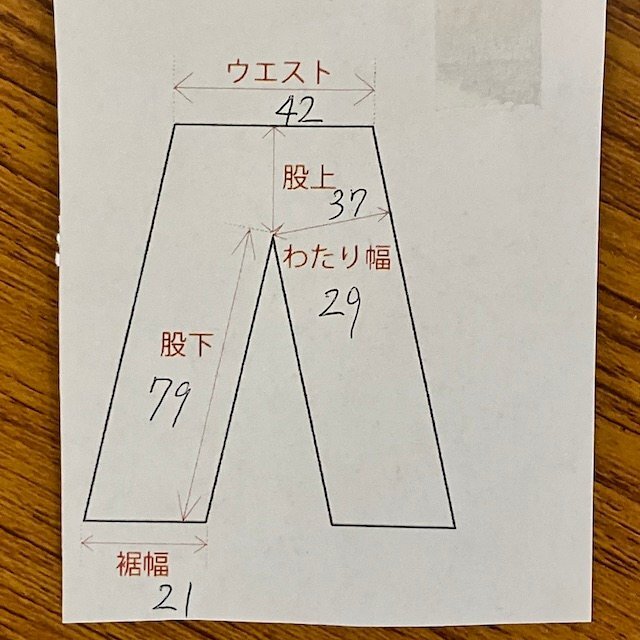 ウエスト
42
股上
37
わたり幅
29
股下
79
裾幅
21